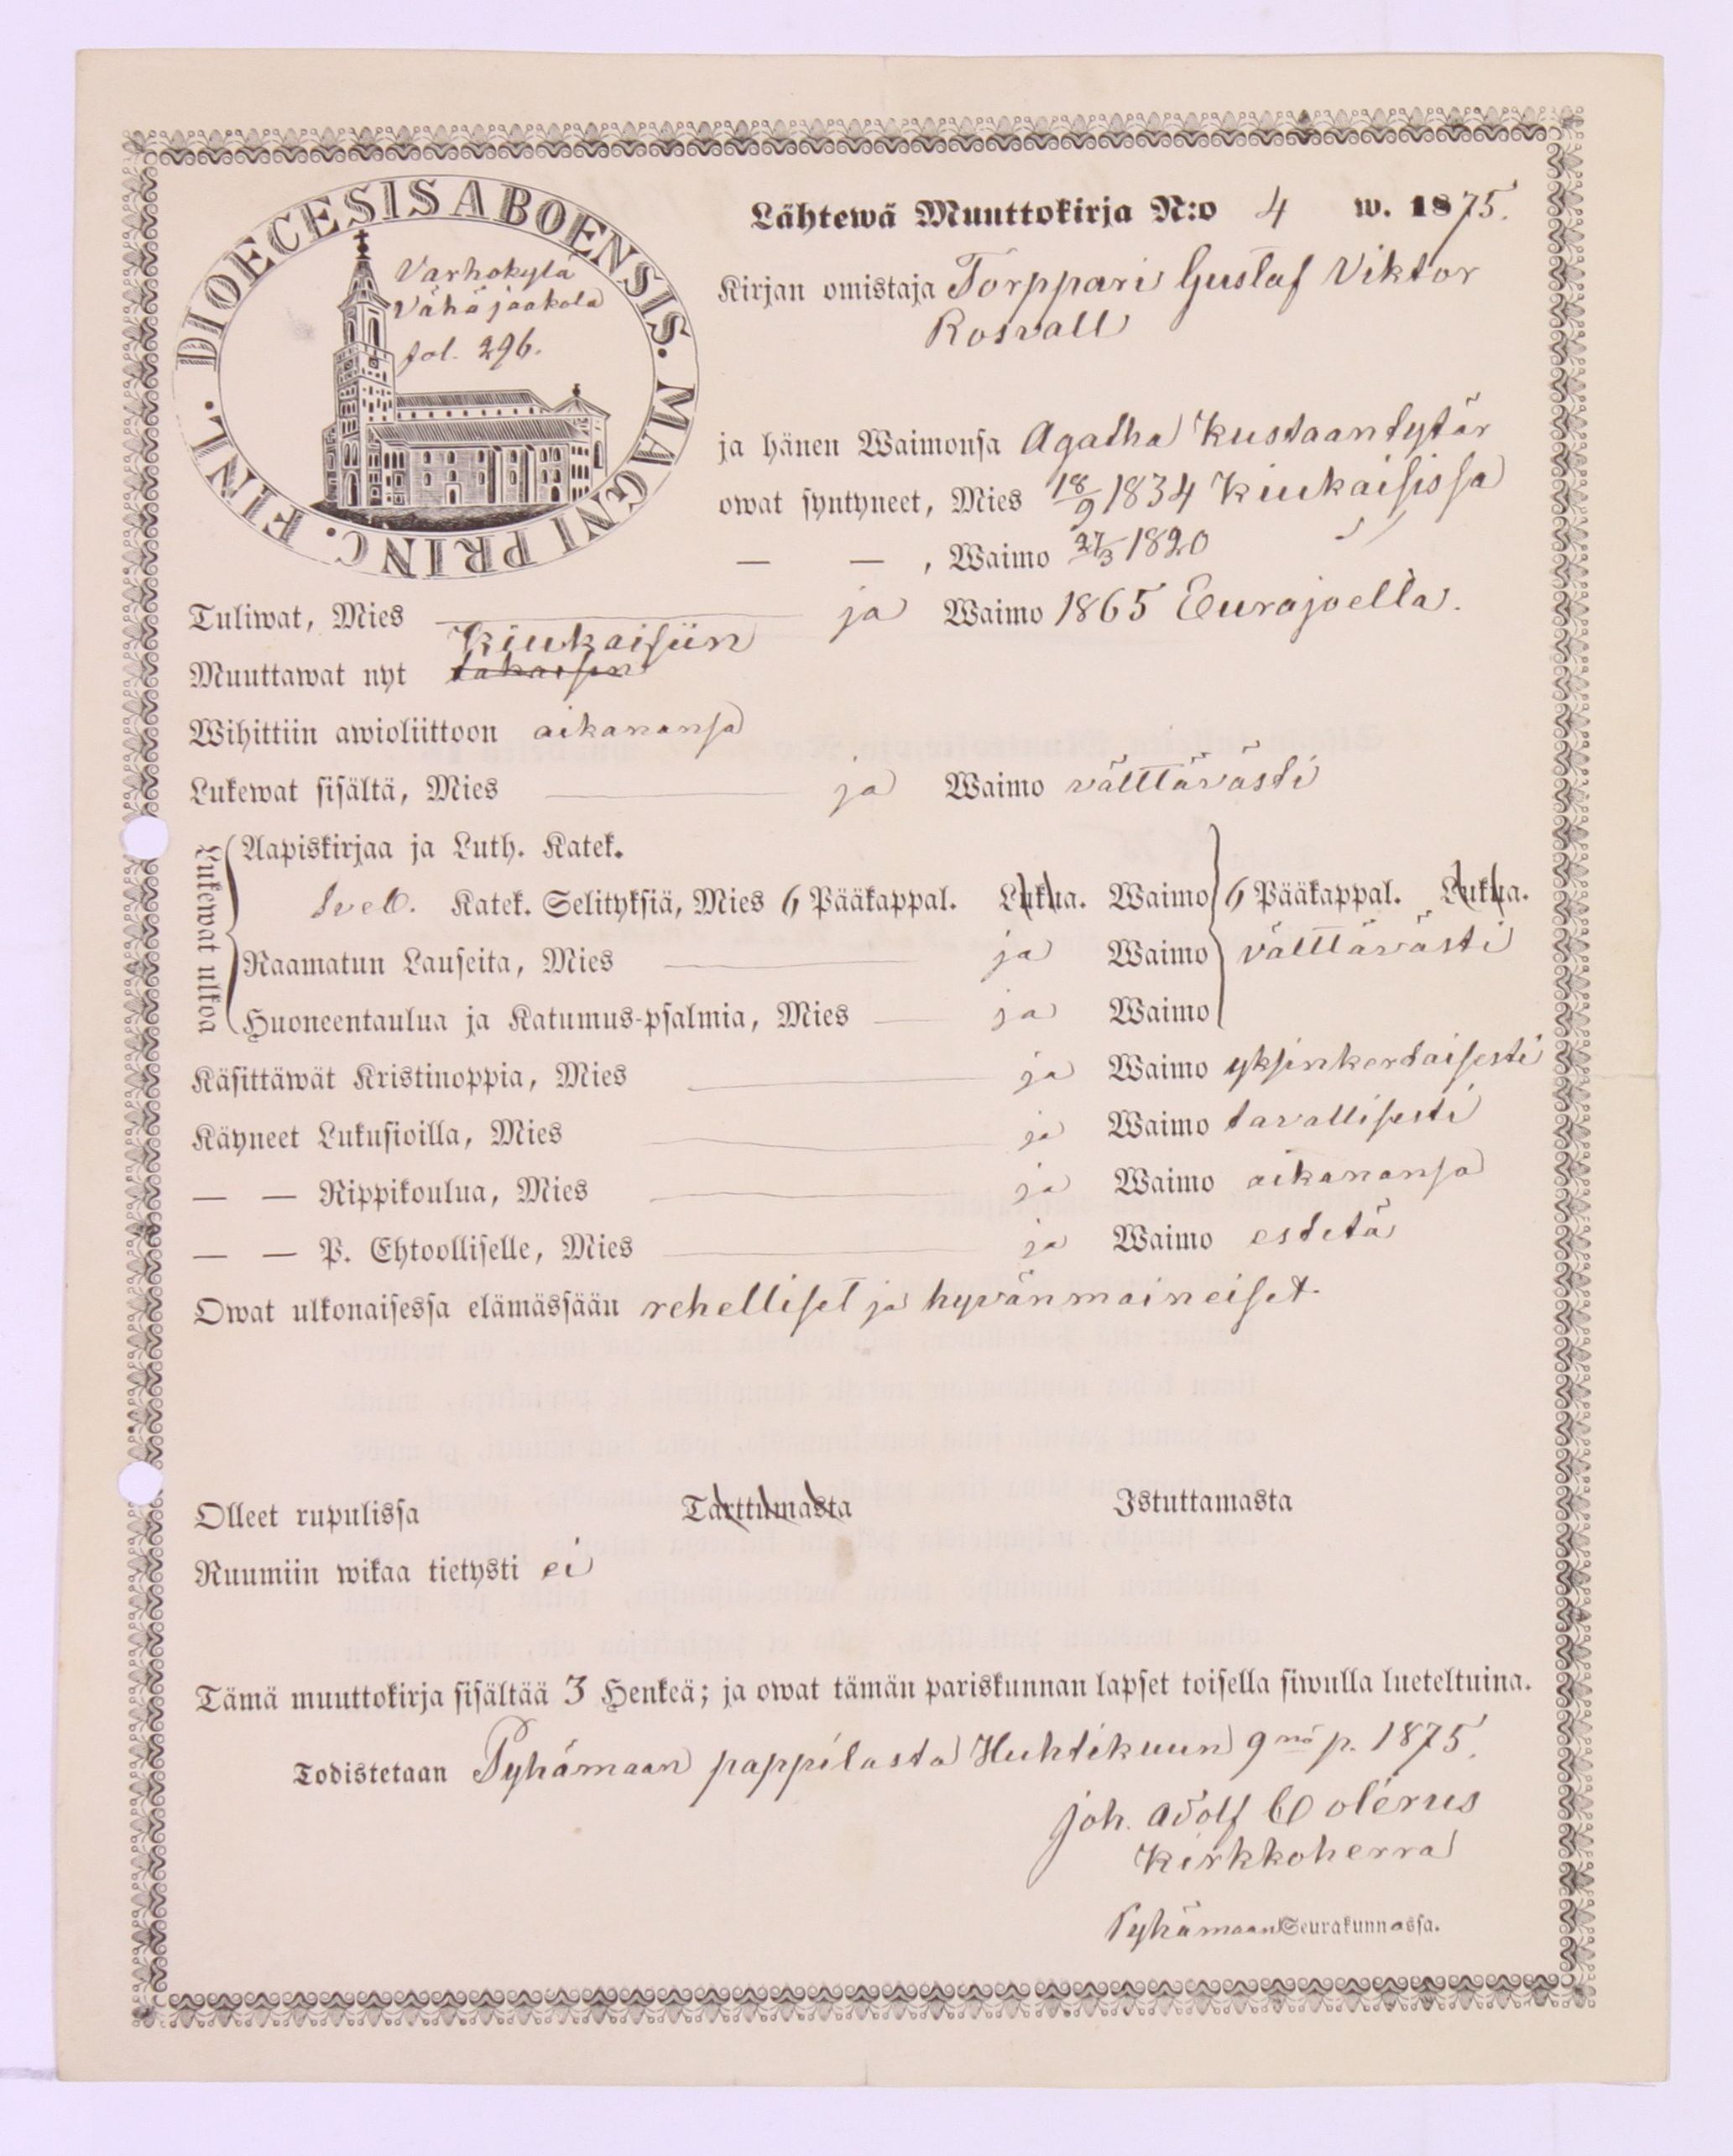 DIOECESIS ABOENSIS. MAGNI PRINC. FINL.
Varhokylä
Vähäjaakola
fol. 296.
Lähtewä Muuttokirja N:o 4 w. 1875.
Kirjan omistaja Torppari Gustaf Viktor
Rosvall
ja hänen Waimonsa Agatha Kustaantytär
owat syntyneet, Mies 18/9 1834 Kiukaisissa
— — , Waimo 27/3 1820
Tuliwat, Mies ja Waimo 1865 Eurajoella.
Kiukaisiin
Muuttawat nyt takaisin
Wihittiin awioliittoon aikanansa
Lukewat sisältä, Mies ja Waimo välttävästi
Lukewat ulkoa
Aapiskirjaa ja Luth. Katek.
Sveb. Katek. Selityksiä, Mies 6 Pääkappal. Lukua. Waimo 6 Pääkappal. Lukua.
Raamatun Lauseita, Mies ja Waimo välttävästi
Huoneentaulua ja Katumus-psalmia, Mies ja Waimo
Käsittäwät Kristinoppia, Mies ja Waimo yksinkertaisesti
Käyneet Lukusioilla, Mies ja Waimo tavallisesti
— — Rippikoulua, Mies ja Waimo aikanansa
— — P. Ehtoolliselle, Mies ja Waimo estetä
Owat ulkonaisessa elämässään rehelliset ja hyvänmaineiset.
Olleet rupulissa Tarttumasta Istuttamasta
Ruumiin wikaa tietysti ei
Tämä muuttokirja sisältää 3 Henkeä; ja owat tämän pariskunnan lapset toisella siwulla lueteltuina.
Todistetaan Pyhämaan pappilasta Huhtikuun 9 nä p. 1875.
Joh. Adolf Colérus
Kirkkoherra
Pyhämaan Seurakunnassa.